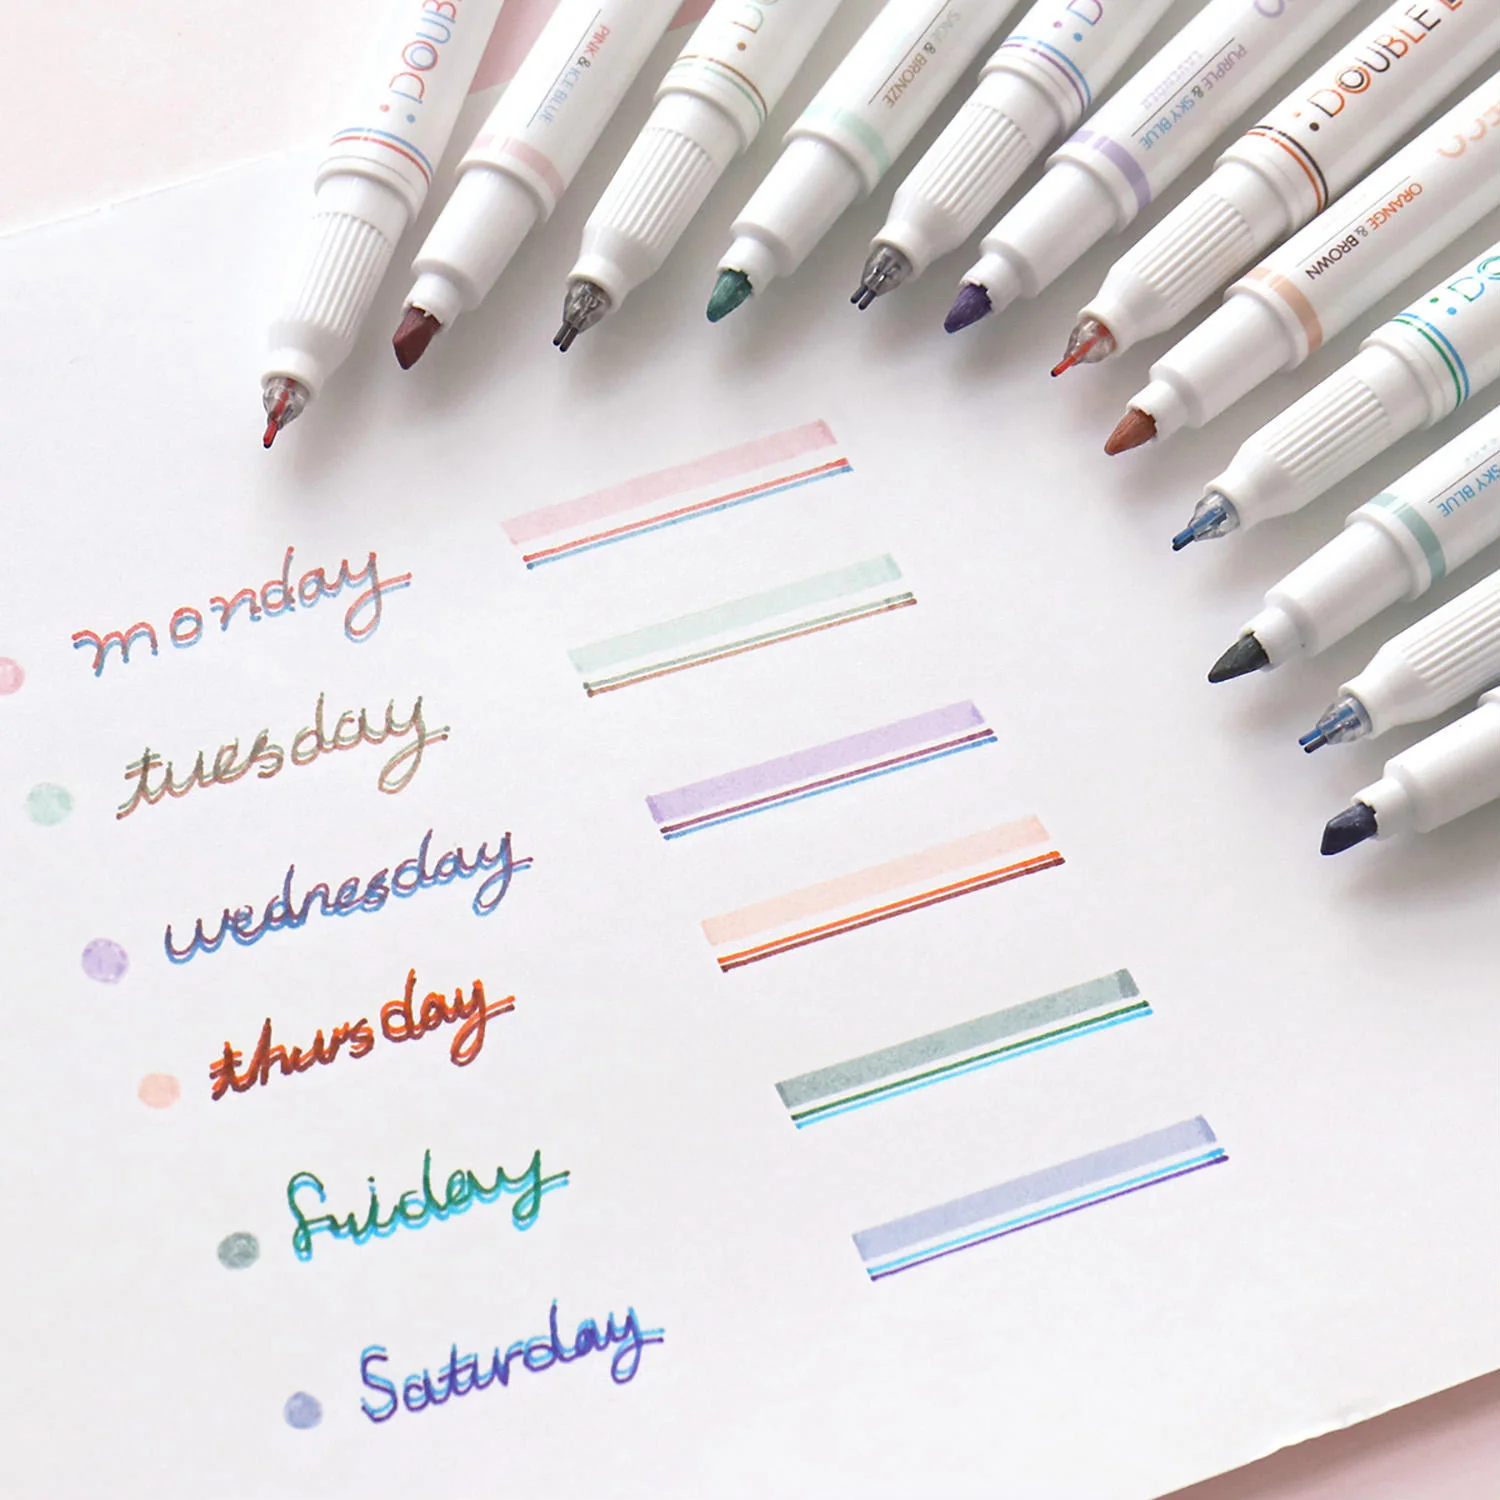 DOUBL
PINK & ICE BLUE
SAGE & BRONZE
PURPLE & SKY BLUE
LAVENDER
DOUBLE
ORANGE & BROWN
SKY BLUE
monday
tuesday
wednesday
thursday
friday
Saturday